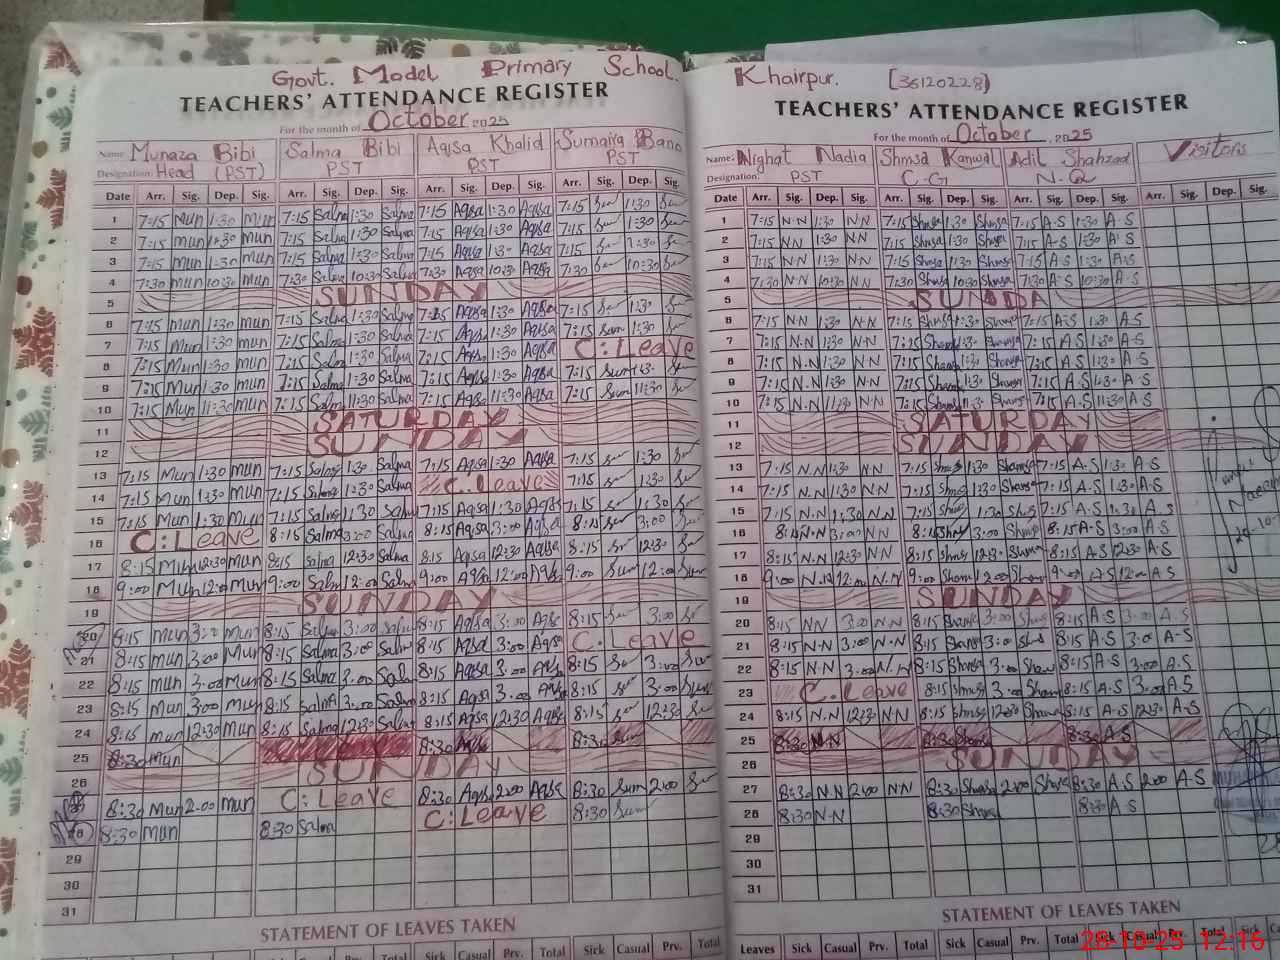 Govt. Model Primary School.
TEACHERS' ATTENDANCE REGISTER
For the month of October 2025
Name Munaza Bibi Salma Bibi Aqsa Khalid Sumaira Bano
Designation Head (PST) PST PST PST
Date Arr. Sig. Dep. Sig. Arr. Sig. Dep. Sig. Arr. Sig. Dep. Sig. Arr. Sig. Dep. Sig.
1 7:15 Mun 1:30 Mun 7:15 Salma 1:30 Salma 7:15 Aqsa 1:30 Aqsa 7:15 1:30
2 7:15 Mun 1:30 Mun 7:15 Salma 1:30 Salma 7:15 Aqsa 1:30 Aqsa 7:15 1:30
3 7:15 Mun 1:30 Mun 7:15 Salma 1:30 Salma 7:15 Aqsa 1:30 Aqsa 7:15 1:30
4 7:30 Mun 10:30 Mun 7:30 Salma 10:30 Salma 7:30 Aqsa 10:30 Aqsa 7:30 10:30
5 SUNDAY
6 7:15 Mun 1:30 Mun 7:15 Salma 1:30 Salma 7:15 Aqsa 1:30 Aqsa 7:15 1:30
7 7:15 Mun 1:30 Mun 7:15 Salma 1:30 Salma 7:15 Aqsa 1:30 Aqsa 7:15 Sum 1:30
8 7:15 Mun 1:30 Mun 7:15 Salma 1:30 Salma 7:15 Aqsa 1:30 Aqsa C:Leave
9 7:15 Mun 1:30 Mun 7:15 Salma 1:30 Salma 7:15 Aqsa 1:30 Aqsa 7:15 Sum 1:30
10 7:15 Mun 11:30 Mun 7:15 Salma 11:30 Salma 7:15 Aqsa 11:30 Aqsa 7:15 Sum 11:30
11 SATURDAY
12 SUNDAY
13 7:15 Mun 1:30 Mun 7:15 Salma 1:30 Salma 7:15 Aqsa 1:30 Aqsa 7:15 1:30
14 7:15 Mun 1:30 Mun 7:15 Salma 1:30 Salma C.Leave 7:15 1:30
15 7:15 Mun 1:30 Mun 7:15 Salma 1:30 Salma 7:15 Aqsa 1:30 Aqsa 7:15 1:30
16 C:Leave 8:15 Salma 3:00 Salma 8:15 Aqsa 3:00 Aqsa 8:15 3:00
17 8:15 Mun 12:30 Mun 8:15 Salma 12:30 Salma 8:15 Aqsa 12:30 Aqsa 8:15 12:30
18 9:00 Mun 12:00 Mun 9:00 Salma 12:00 Salma 9:00 Aqsa 12:00 Aqsa 9:00 Sum 12:00 Sum
19 SUNDAY
20 8:15 Mun 3:00 Mun 8:15 Salma 3:00 Salma 8:15 Aqsa 3:00 Aqsa 8:15 3:00
21 8:15 Mun 3:00 Mun 8:15 Salma 3:00 Salma 8:15 Aqsa 3:00 Aqsa C:Leave
22 8:15 Mun 3:00 Mun 8:15 Salma 3:00 Salma 8:15 Aqsa 3:00 Aqsa 8:15 3:00
23 8:15 Mun 3:00 Mun 8:15 Salma 3:00 Salma 8:15 Aqsa 3:00 Aqsa 8:15 3:00 Sum
24 8:15 Mun 12:30 Mun 8:15 Salma 12:30 Salma 8:15 Aqsa 12:30 Aqsa 8:15 12:30
25 8:30 Mun 8:30 8:30
26 SUNDAY
8:30 Mun 2:00 Mun C:Leave 8:30 Aqsa 2:00 Aqsa 8:30 Sum 2:00
28 8:30 Mun 8:30 Salma C:Leave 8:30
29
30
31
STATEMENT OF LEAVES TAKEN
Sick Casual Prv. Total
Khairpur. [36120228)
TEACHERS' ATTENDANCE REGISTER
For the month of October, 2025
Name. Nighat Nadia Shmsa Kanwal Adil Shahzad Visitors
Designation. PST C.G N.Q
Date Arr. Sig. Dep. Sig. Arr. Sig. Dep. Sig. Arr. Sig. Dep. Sig. Arr. Sig. Dep. Sig.
1 7:15 N.N 1:30 N.N 7:15 Shmsa 1:30 Shmsa 7:15 A.S 1:30 A.S
2 7:15 N.N 1:30 N.N 7:15 Shmsa 1:30 Shmsa 7:15 A.S 1:30 A.S
3 7:15 N.N 1:30 N.N 7:15 Shmsa 1:30 Shmsa 7:15 A.S 1:30 A.S
4 7:30 N.N 10:30 N.N 7:30 Shmsa 10:30 Shmsa 7:30 A.S 10:30 A.S
5 SUNDA
6 7:15 N.N 1:30 N.N 7:15 Shmsa 1:30 Shmsa 7:15 A.S 1:30 A.S
7 7:15 N.N 1:30 N.N 7:15 Shmsa 1:30 Shmsa 7:15 A.S 1:30 A.S
8 7:15 N.N 1:30 N.N 7:15 Shamsa 1:30 Shmsa 7:15 A.S 1:30 A.S
9 7:15 N.N 1:30 N.N 7:15 Shamsa 1:30 Shmsa 7:15 A.S 1:30 A.S
10 7:15 N.N 11:30 N.N 7:15 Shamsa 11:30 Shmsa 7:15 A.S 11:30 A.S
11 SATURDAY
12 SUNDAY
13 7:15 N.N 1:30 N.N 7:15 Shmsa 1:30 Shamsa 7:15 A.S 1:30 A.S
14 7:15 N.N 1:30 N.N 7:15 Shmsa 1:30 Shamsa 7:15 A.S 1:30 A.S
15 7:15 N.N 1:30 N.N 7:15 Shmsa 1:30 Shmsa 7:15 A.S 1:30 A.S
16 8:15 N.N 3:00 N.N 8:15 Shmsa 3:00 Shmsa 8:15 A.S 3:00 A.S
17 8:15 N.N 12:30 N.N 8:15 Shmsa 12:30 Shmsa 8:15 A.S 12:30 A.S
18 9:00 N.N 12:00 N.N 9:00 Shamsa 12:00 Shamsa 9:00 A.S 12:00 A.S
19 SUNDAY
20 8:15 N.N 3:00 N.N 8:15 Shamsa 3:00 Shmsa 8:15 A.S 3:00 A.S
21 8:15 N.N 3:00 N.N 8:15 Shamsa 3:00 Shmsa 8:15 A.S 3:00 A.S
22 8:15 N.N 3:00 N.N 8:15 Shamsa 3:00 Shamsa 8:15 A.S 3:00 A.S
23 C.Leave 8:15 Shmsa 3:00 Shamsa 8:15 A.S 3:00 A.S
24 8:15 N.N 12:30 N.N 8:15 Shmsa 12:30 Shamsa 8:15 A.S 12:30 A.S
25 8:30 N.N 8:30 Shamsa 8:30 A.S
26 SUNDAY
27 8:30 N.N 2:00 N.N 8:30 Shmsa 2:00 Shmsa 8:30 A.S 2:00 A.S
28 8:30 N.N 8:30 Shamsa 8:30 A.S
29
30
31
STATEMENT OF LEAVES TAKEN
Leaves Sick Casual Prv. Total Sick Casual Prv. Total Sick Casual Prv. Total Sick Cas
28-10-25 12:16